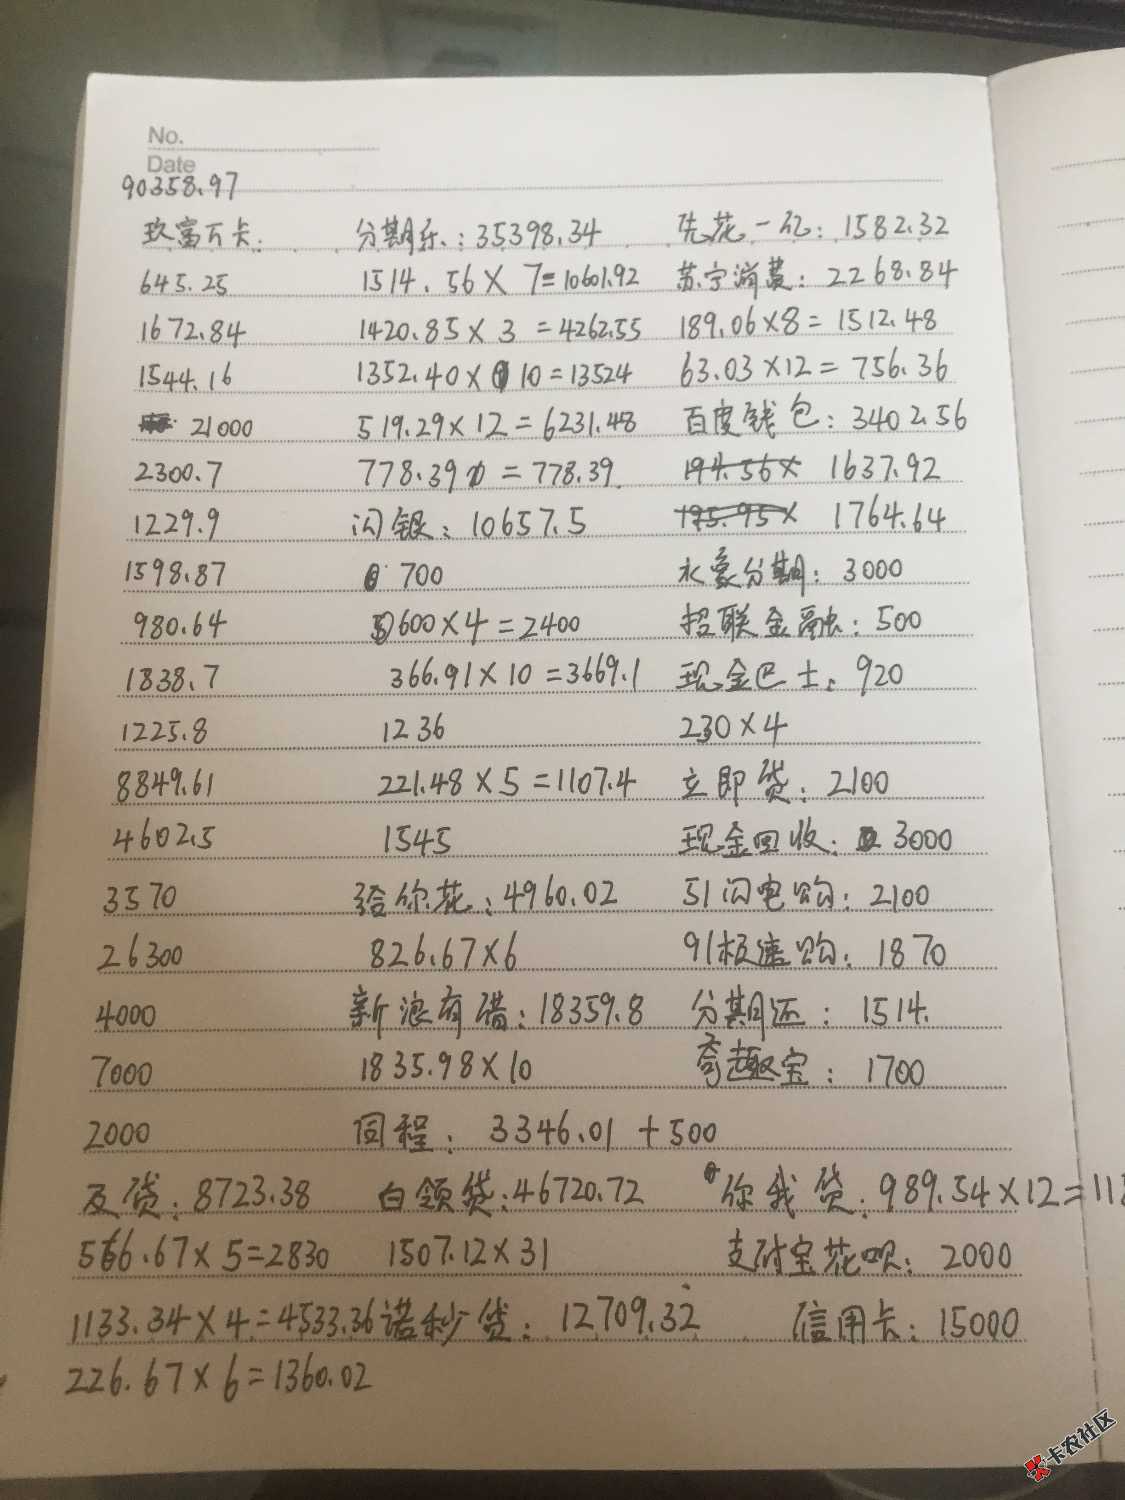 No.
Date
90358.97
玖富万卡: 分期乐: 35398.34 先花一亿: 1582.32
645.25 1514.56×7=10601.92 苏宁消费: 2268.84
1672.84 1420.85×3=4262.55 189.06×8=1512.48
1544.16 1352.40×10=13524 63.03×12=756.36
21000 519.29×12=6231.48 百度钱包: 3402.56
2300.7 778.39=778.39 194.56× 1637.92
1229.9 闪银: 10657.5 195.95× 1764.64
1598.87 700 永象分期: 3000
980.64 600×4=2400 招联金融: 500
1838.7 366.91×10=3669.1 现金巴士: 920
1225.8 1236 230×4
8849.61 221.48×5=1107.4 立即贷: 2100
4602.5 1545 现金回收: 3000
3570 给你花: 4960.02 51闪电购: 2100
26300 826.67×6 91极速购: 1870
4000 新浪有借: 18359.8 分期还: 1514.
7000 1835.98×10 奇趣宝: 1700
2000 同程: 3346.01+500
及贷: 8723.38 白领贷: 46720.72 你我贷: 989.54×12=118
566.67×5=2830 1507.12×31 支付宝花呗: 2000
1133.34×4=4533.36 诺秒贷: 12709.32 信用卡: 15000
226.67×6=1360.02
卡农社区